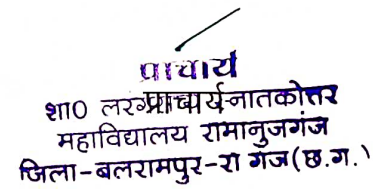 प्राचार्य
शा0 लरग प्राचार्य नातकोत्तर
महाविद्यालय रामानुजगंज
जिला-बलरामपुर-रा गंज(छ.ग.)